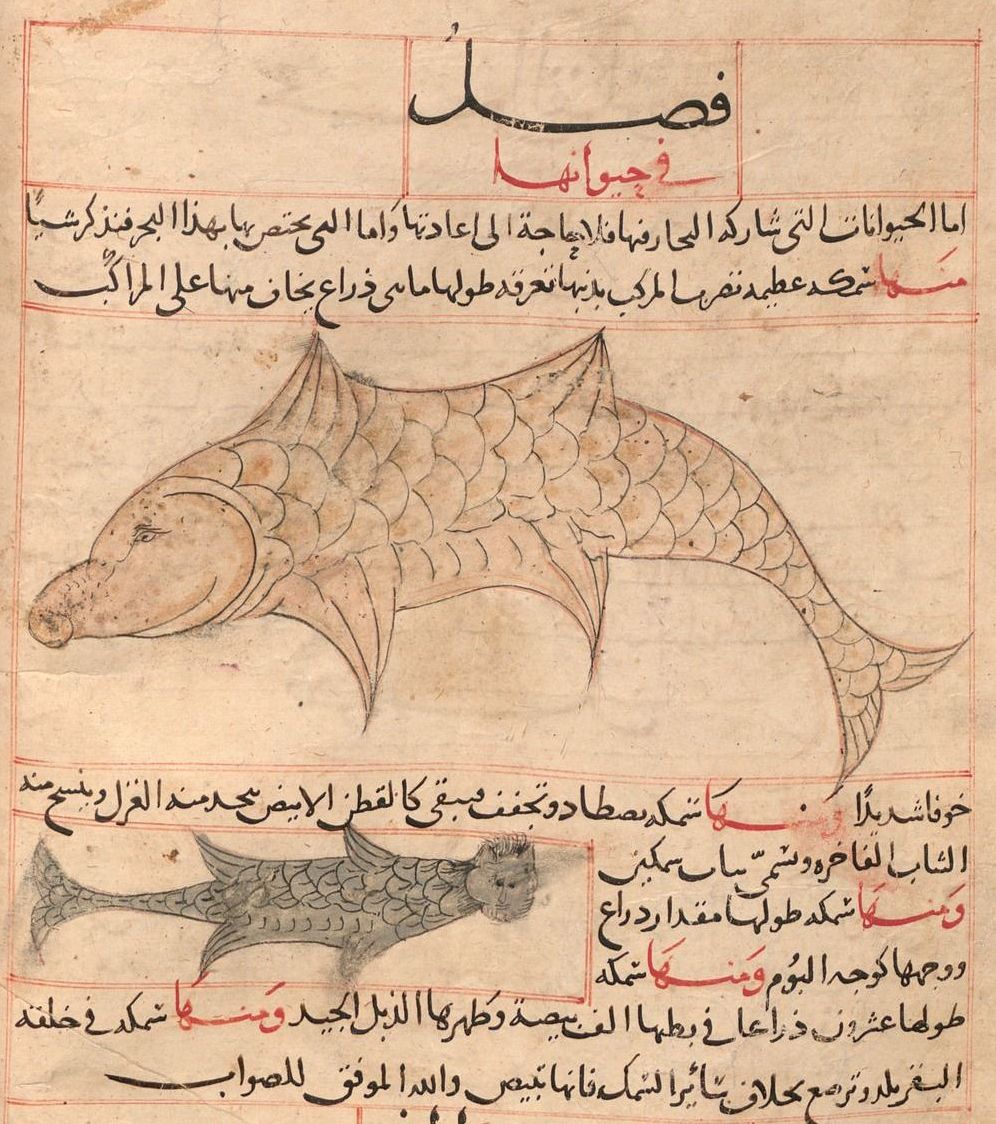 فصل
في حيوانها
اما الحيوانات التى تشاركه البحار فيها فلا حاجة الى اعادتها واما التى يختص بها بهذا البحر فنذكر شيئًا
منها سمكه عظيمه تضرب المركب بذنبها تغرقه طولها مايتى ذراع يخاف منها على المراكب
خوفا شديدًا ومنها سمكه يصطاد وتجفف فيبقى كالقطن الابيض يتخذ منه الغزل وينسج منه
الثياب الفاخره وتسمى ثياب سمكين
ومنها سمكه طولها مقدار ذراع
ووجهها كوجه البُوم ومنها سمكه
طولها عشرون ذراعا في بطنها الف بيضة وظهرها الذبل الجيد ومنها سمكه في خلقه
البقر يلد وترضع بخلاف سائر السمك فانها تبيض والله الموفق للصواب